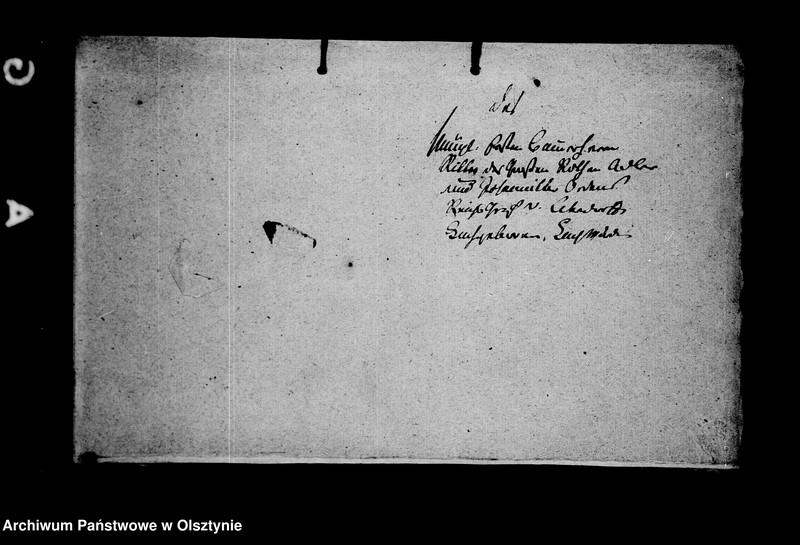 Des
Königl. Ersten Cammerherrn
Ritter des Großen Rothen Adler
und Johanniter Ordens
Reichs Graf v. Lehndorff
Hochgeboren,
Archiwum Państwowe w Olsztynie